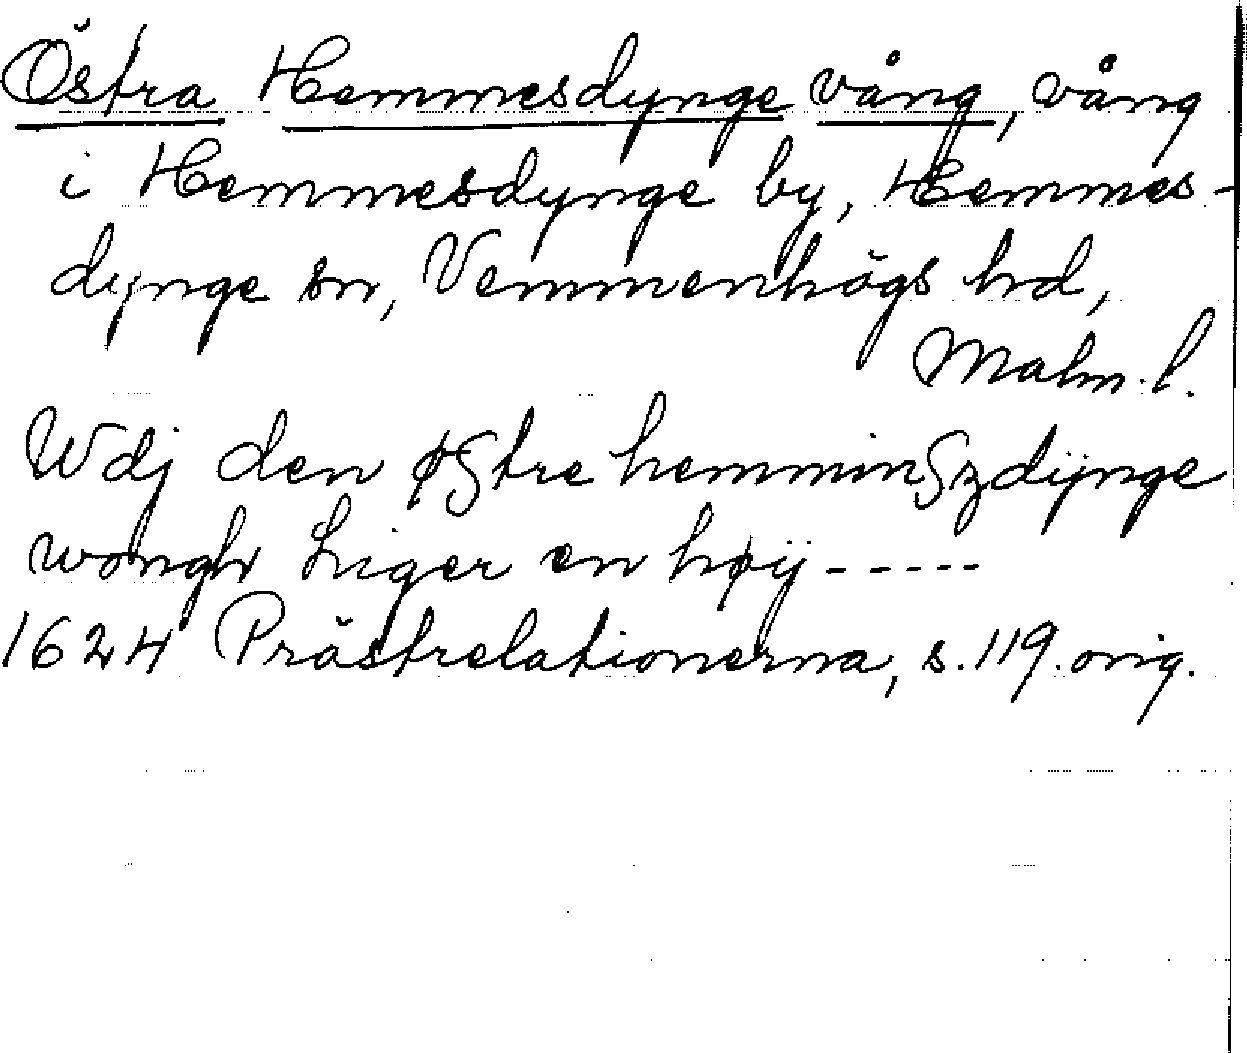 Östra Hemmesdynge vång, vång
i Hemmesdynge by, Hemmes-
dynge sn, Vemmenhögs hd,
Malm. l.
Wdj den østre hemminszdÿnge
wongh Liger en høÿ -----
1624 Prästrelationerna, s. 119. orig.